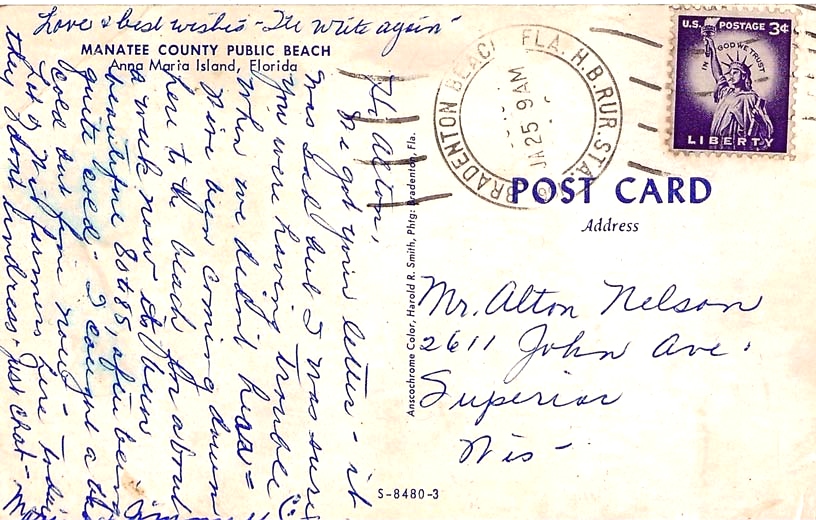 Love & best wishes - I'll write again -
MANATEE COUNTY PUBLIC BEACH
Anna Maria Island, Florida
Hi Alton,
We got your letter - it
was sad but I was sure
you were having trouble
when we didn't hear -
We've been coming down
here to the beach for about
a week now it's been
beautiful 80 & 85, after being
quite cold - I caught a
cold but fine now -
Lot of Wis farmers here today
they don't undress - just chat -
Anscochrome Color, Harold R. Smith, Phtg: Bradenton, Fla.
S-8480-3
BRADENTON BEACH FLA. H.B.RUR.STA.
JA 25 9 AM
U.S. POSTAGE 3¢
IN GOD WE TRUST
LIBERTY
POST CARD
Address
Mr. Alton Nelson
2611 John Ave.
Superior
Wis -